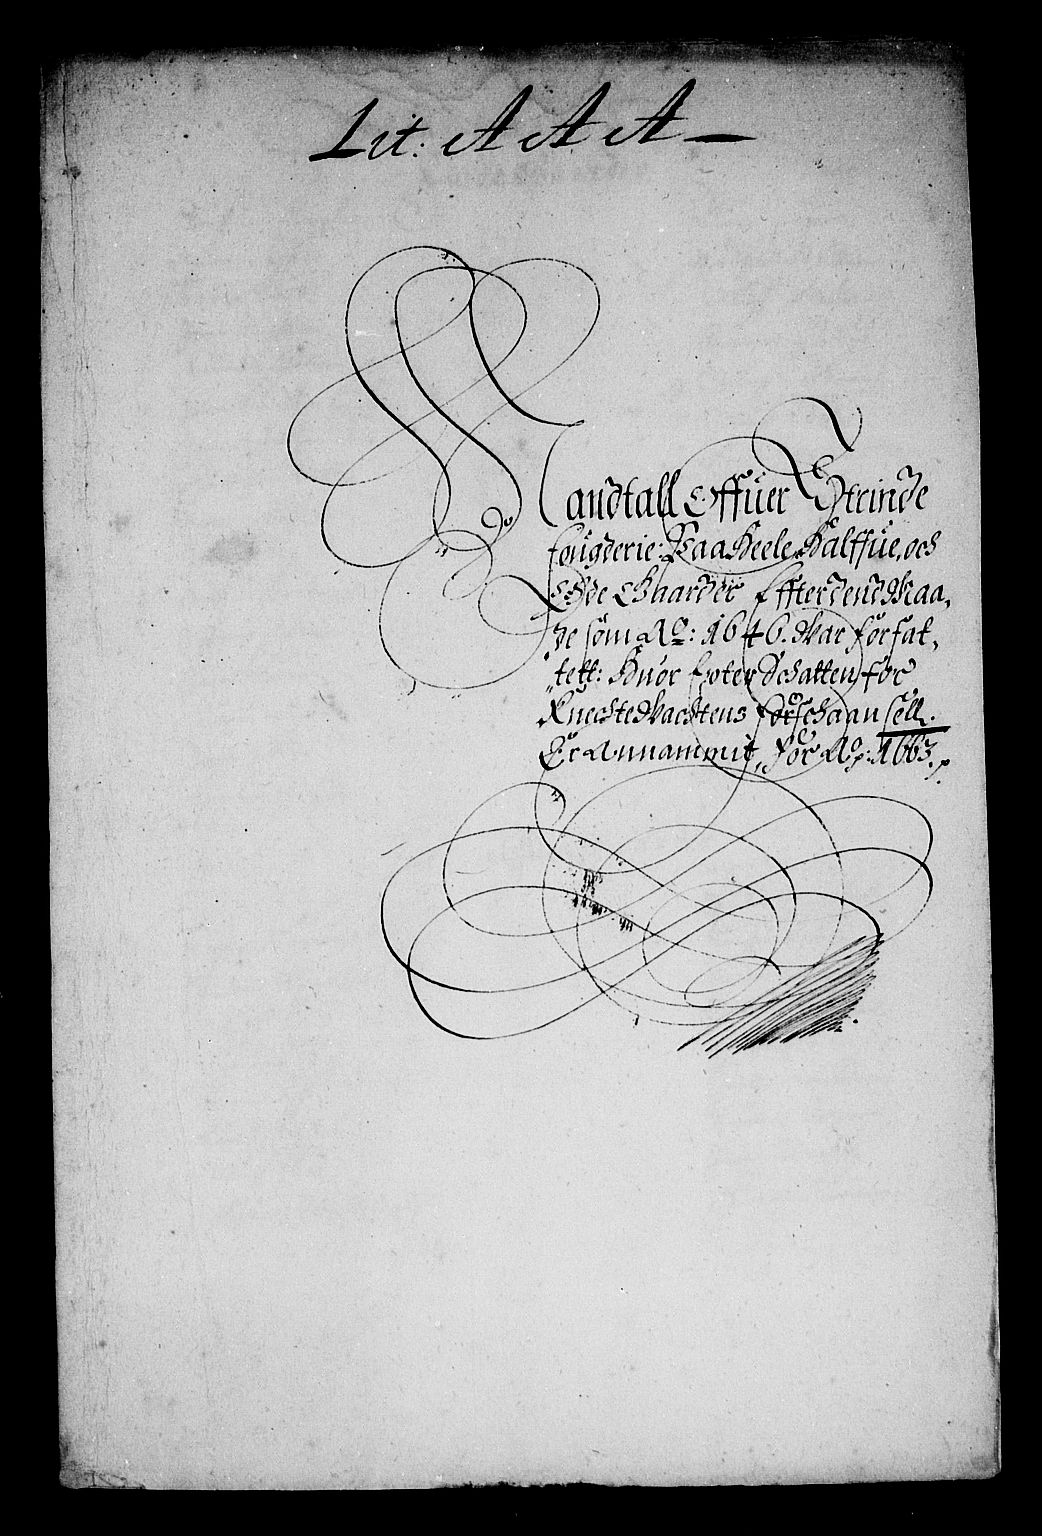 Lit: A A A
Mandtall Offuer Strinde
fougderie: Paa Heele, Halffue, och
Øde Gaarder Effter dend Maa„
„de som Aº: 1646. War forfat„
„tett: Huor Effter Schatten for
Knechte Wachtens forschaansell.
Er Annammit, for Aº: 1663.